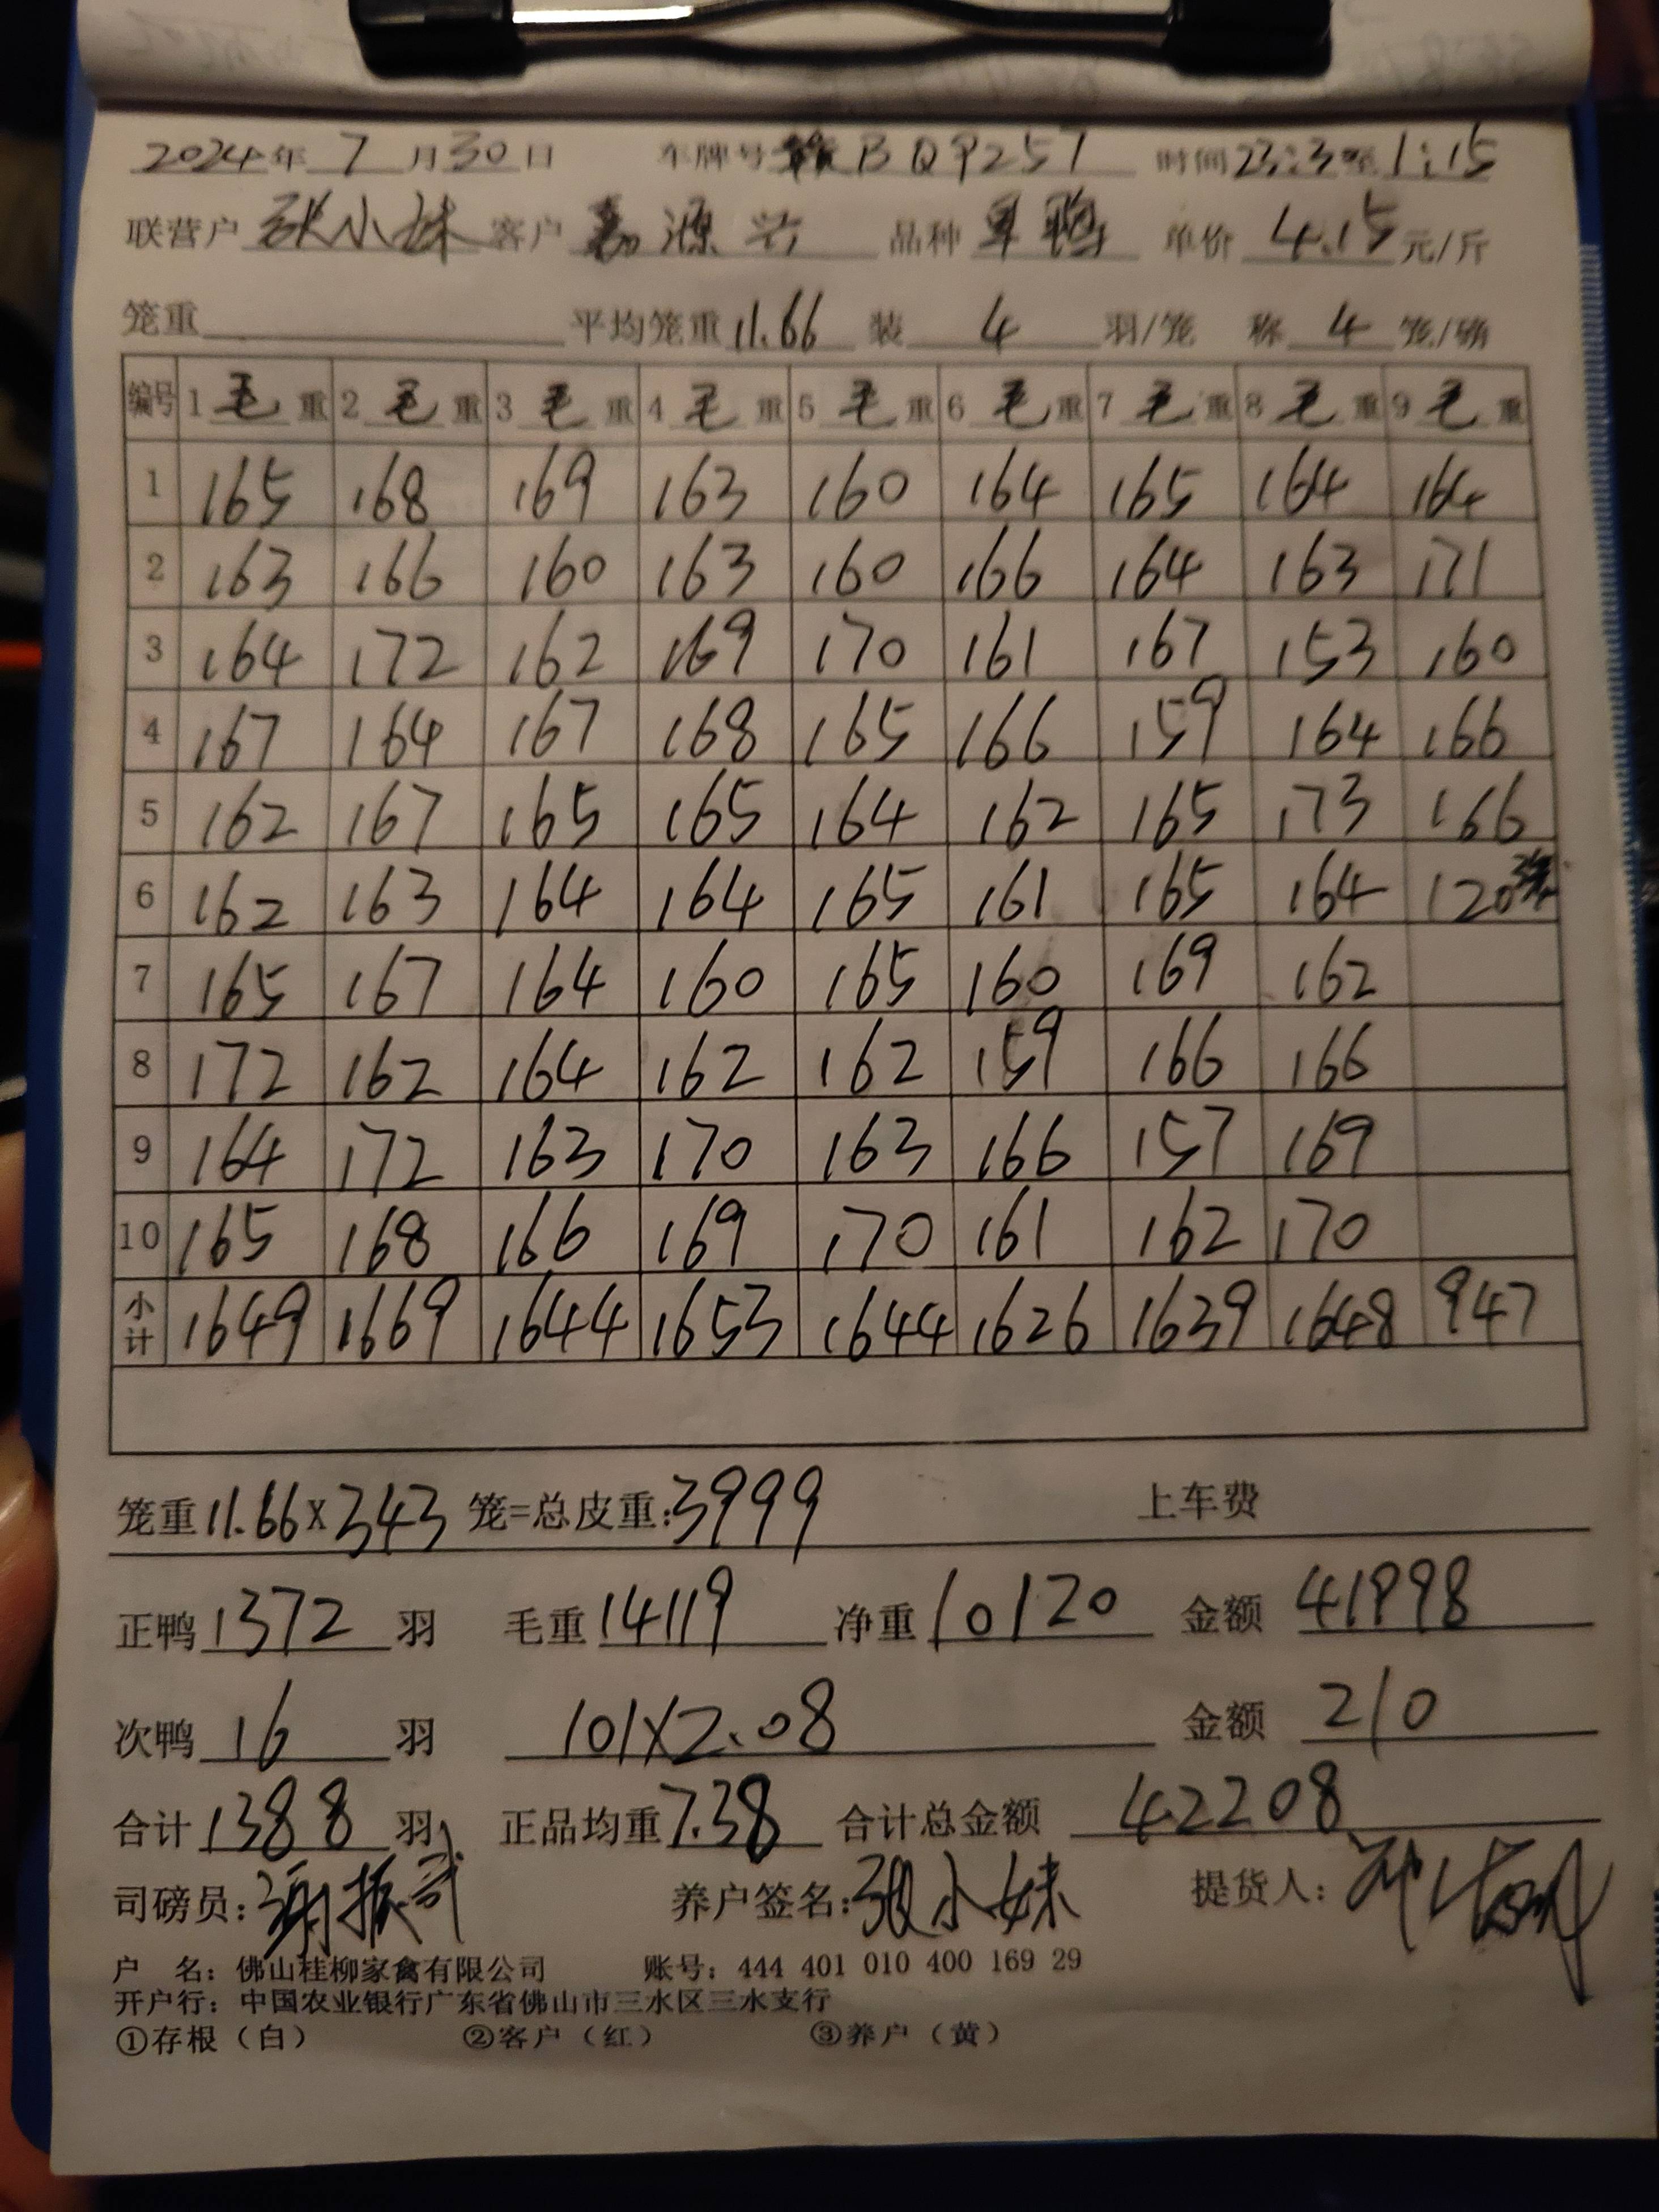 2024年 7 月 30 日 车牌号 赣BQP257 时间 23:3 至 1:15
联营户 张小妹 客户 嘉源兴 品种 旱鸭 单价 4.15 元/斤
笼重 平均笼重 11.66 装 4 羽/笼 称 4 笼/磅
编号 1 毛 重 2 毛 重 3 毛 重 4 毛 重 5 毛 重 6 毛 重 7 毛 重 8 毛 重 9 毛 重
1 165 168 169 163 160 164 165 164 164
2 163 166 160 163 160 166 164 163 171
3 164 172 162 169 170 161 167 153 160
4 167 164 167 168 165 166 159 164 166
5 162 167 165 165 164 162 165 173 166
6 162 163 164 164 165 161 165 164 120
7 165 167 164 160 165 160 169 162
8 172 162 164 162 162 159 166 166
9 164 172 163 170 163 166 157 169
10 165 168 166 169 170 161 162 170
小计 1649 1669 1644 1653 1644 1626 1639 1648 947
笼重 11.66 X 343 笼=总皮重: 3999 上车费
正鸭 1372 羽 毛重 14119 净重 10120 金额 41998
次鸭 16 羽 101X2.08 金额 210
合计 1388 羽 正品均重 7.38 合计总金额 42208
司磅员: 谢振武 养户签名: 张小妹 提货人:
户 名: 佛山桂柳家禽有限公司 账号: 444 401 010 400 169 29
开户行: 中国农业银行广东省佛山市三水区三水支行
①存根（白） ②客户（红） ③养户（黄）